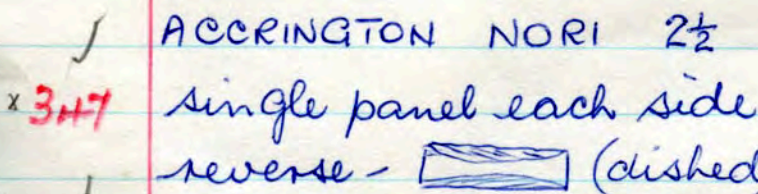 ACCRINGTON NORI 2½
x 347 single panel each side
reverse - (dished